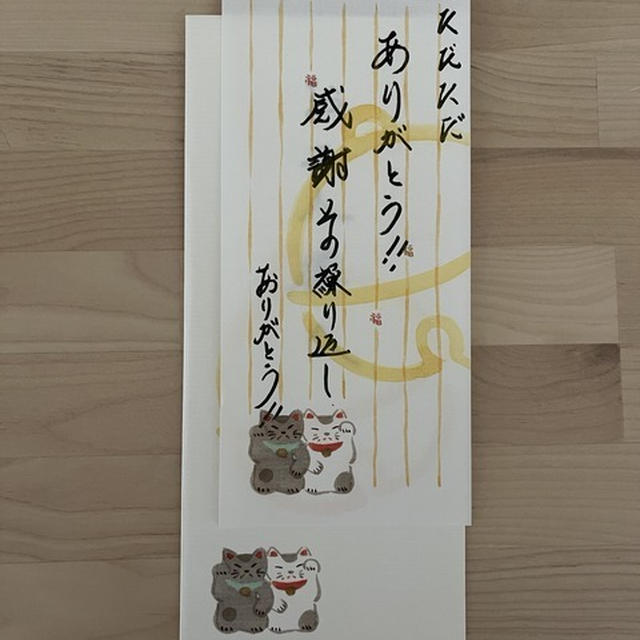 ただただ
ありがとう!!
感謝その繰り返し.
ありがとう!!
福
福
福